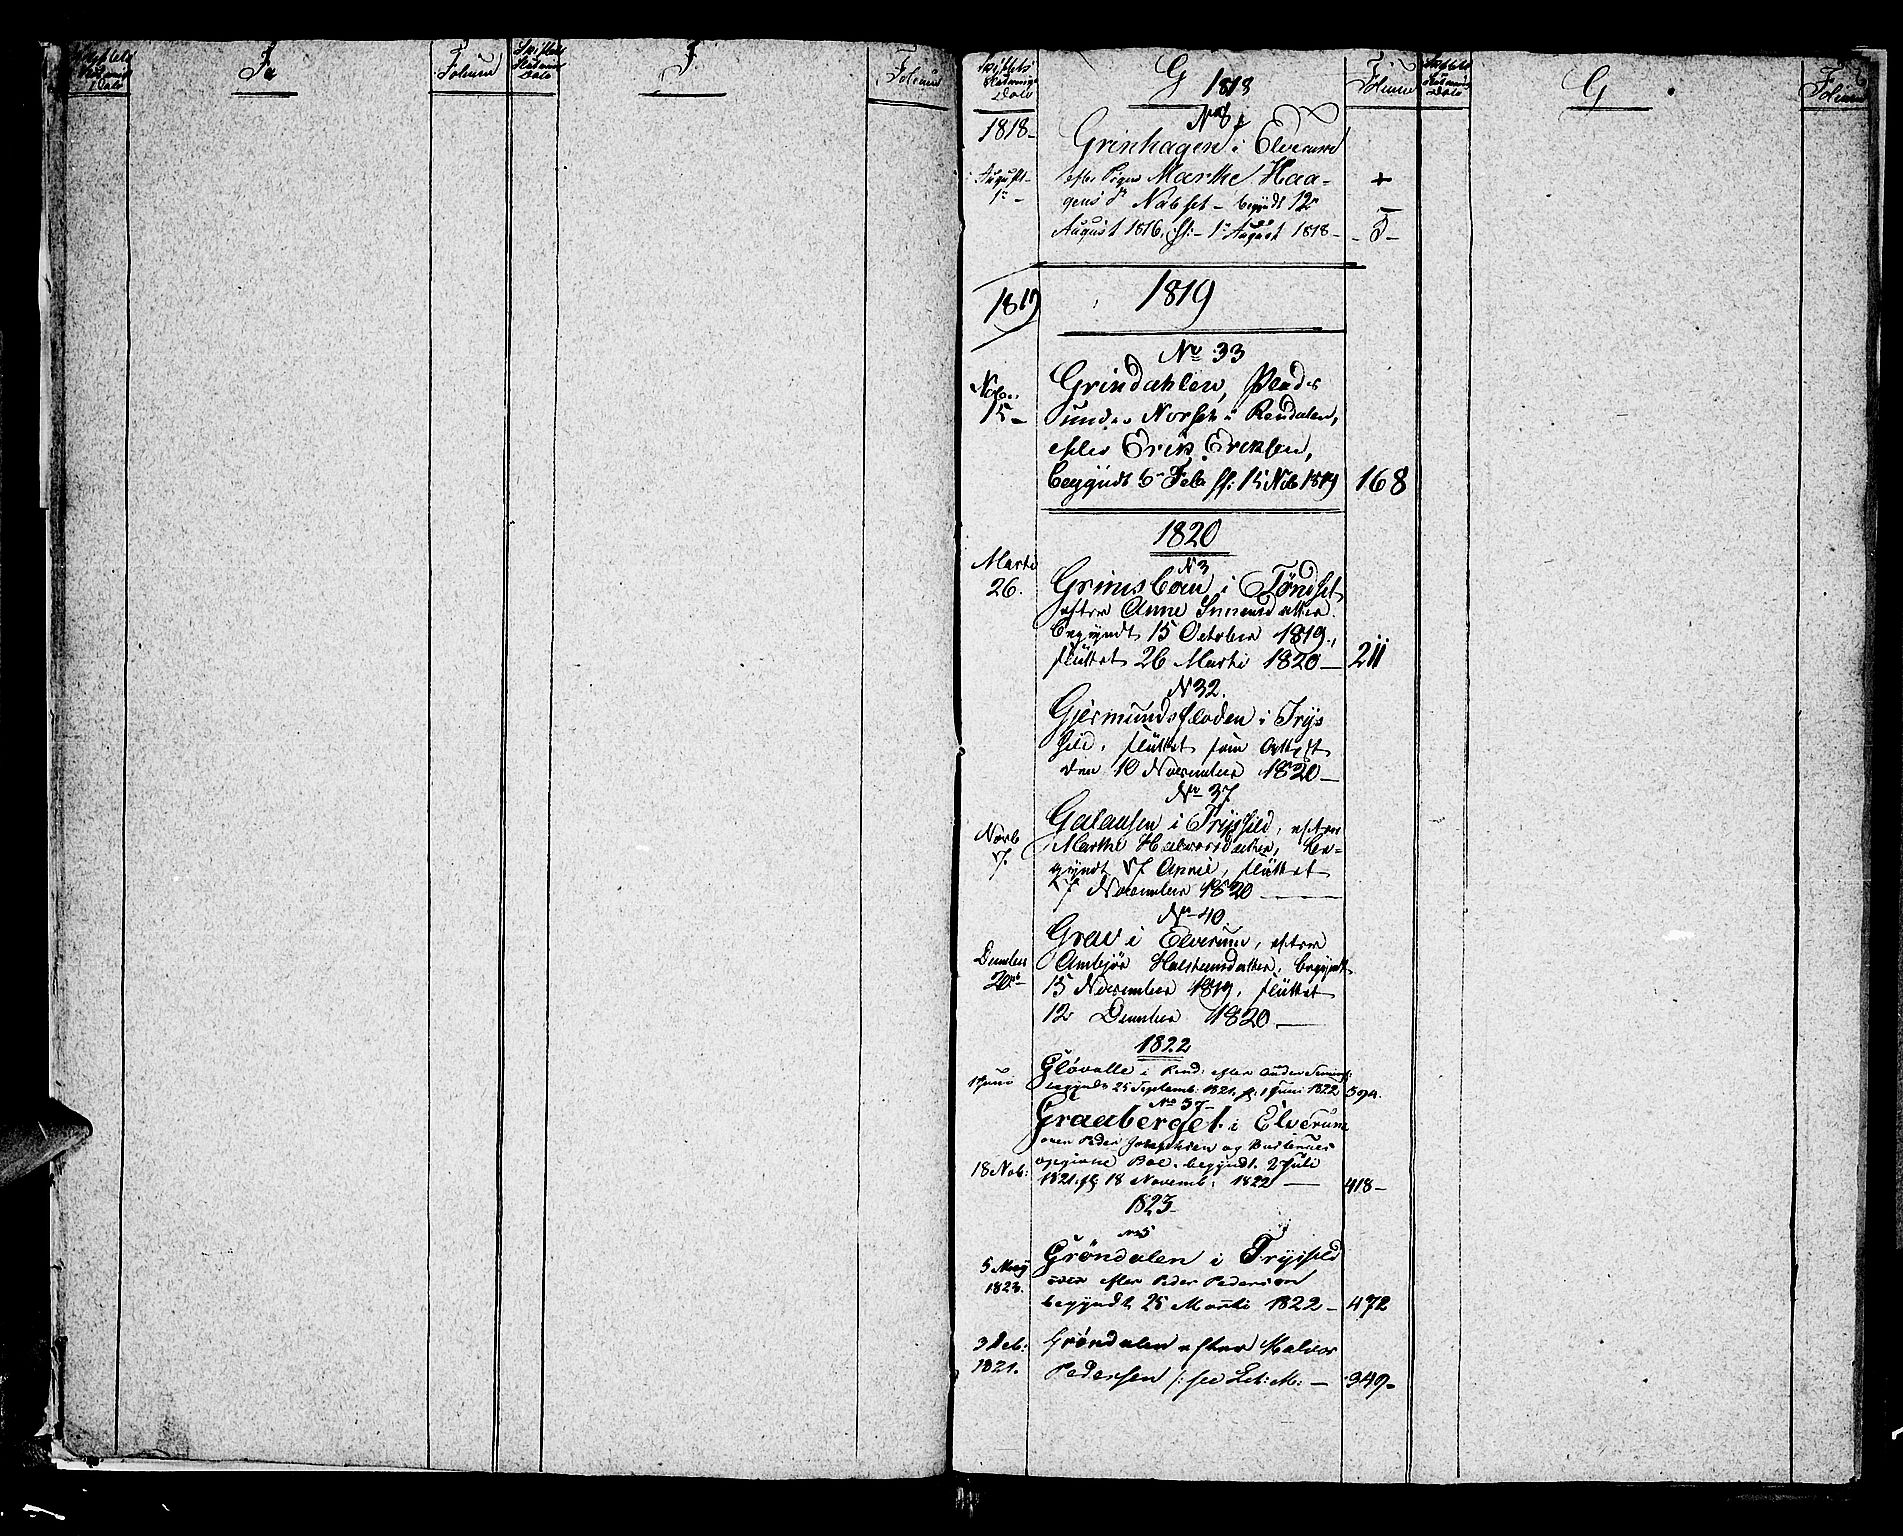 F.
Folium
Skiftets
Slutnings
Dato
F.
Folium
Skiftets
Slutnings
Dato
G
1818
Folium
Skiftets
Slutnings
Dato
G
Folium
1818-
No 8
Grinhagen i Elverum
August
1ste -
efter Pigen Marthe Haa-
gens Dr Nabset - begyndt 12te
August 1816, sl: - 1ste August 1818 -
1819
1819
No 33
Novbr.
15 -
Grindahlen, Plads
under Norset i Rendalen,
efter Erik Eriksen,
begyndt 6 Feb sl: 15 Nob 1819 168
1820
Martz
26.
N 3
Grimsboen i Tøndset
efter Anne Simensdatter
begyndt 15 October 1819,
sluttet 26 Marti 1820 - 211
N 32.
Gjermundsfloden i Trys
sild, sluttet som
den 10 November 1820 -
No 37
Novb
7.
Galaasen i Trysild, efter
Marthe Halvorsdatter, be-
gyndt 17 sluttet
7 November 1820 -
No 40.
December
20
Grav i Elverum, efter
Ambjør Halstensdatter, begyndt
15 November 1819, sluttet
12 December 1820 -
1822
1 Juni
Gløvolle i Rend: efter
begyndt 25 Septemb: 1821, sl. 1 Juni 1822 394.
No 37-
Graaberget i Elverum
over Peder Josephsen og Hustrues
18 Nob:
opgivne Boe. begyndt 2 Juli
1821. sl 18 Novemb: 1822 - 418-
1823
No 5
5 May
1823.
Grøndalen i Trysild
efter Peder Pedersen
begyndt 25 Marti 1822 - 472
3 Feb:
1821.
Grøndalen efter Halvor
Pedersen /: see Lit: M: - 349-